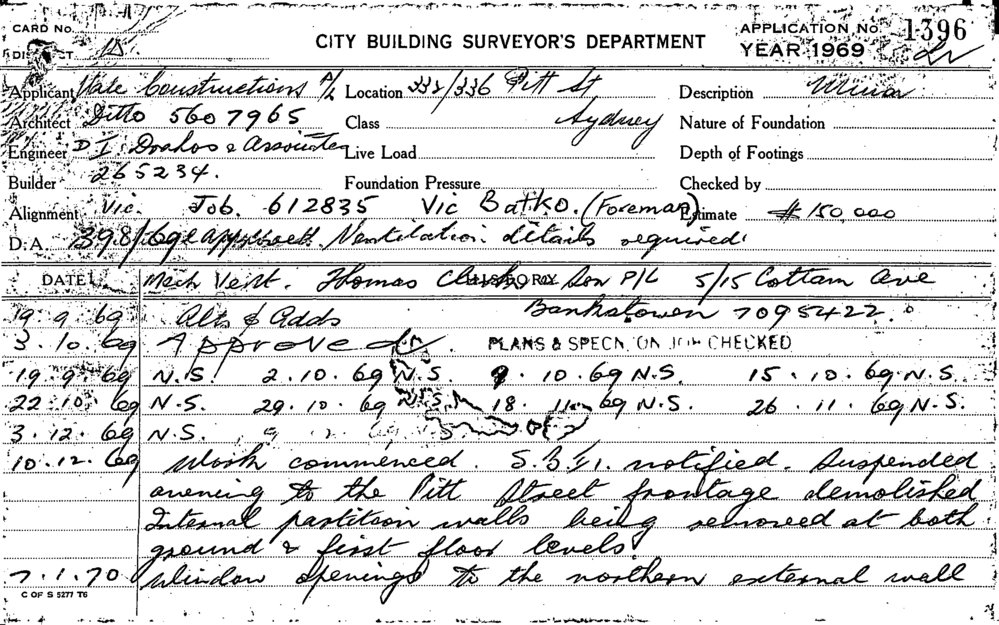 CARD No.
CITY BUILDING SURVEYOR'S DEPARTMENT
APPLICATION No. 1396
YEAR 1969
Applicant State Constructions P/L Location 332/336 Pitt St Description
Architect Ditto 5607965 Class Sydney Nature of Foundation
Engineer D I. & Associates Live Load Depth of Footings
Builder 265234. Foundation Pressure Checked by
Alignment Vic. Job. 612835 Vic Batko. (Foreman) Estimate $150,000
D.A. 398/69 approved. Ventilation details required.
DATE HISTORY Mech Vent. Thomas Clark & Son P/L 5/15 Cottam Ave
Bankstown 7095422.
19.9.69 Alts & Adds
3.10.69 Approved. PLANS & SPECN. ON JOB CHECKED
19.9.69 N.S. 2.10.69 N.S. 9.10.69 N.S. 15.10.69 N.S.
22.10.69 N.S. 29.10.69 N.S. 18.11.69 N.S. 26.11.69 N.S.
3.12.69 N.S.
10.12.69 Work commenced. S.B.I. notified. Suspended
awning to the Pitt Street frontage demolished
Internal partition walls being removed at both
ground & first floor levels.
7.1.70 Window openings to the northern external wall
C OF S 5277 T6